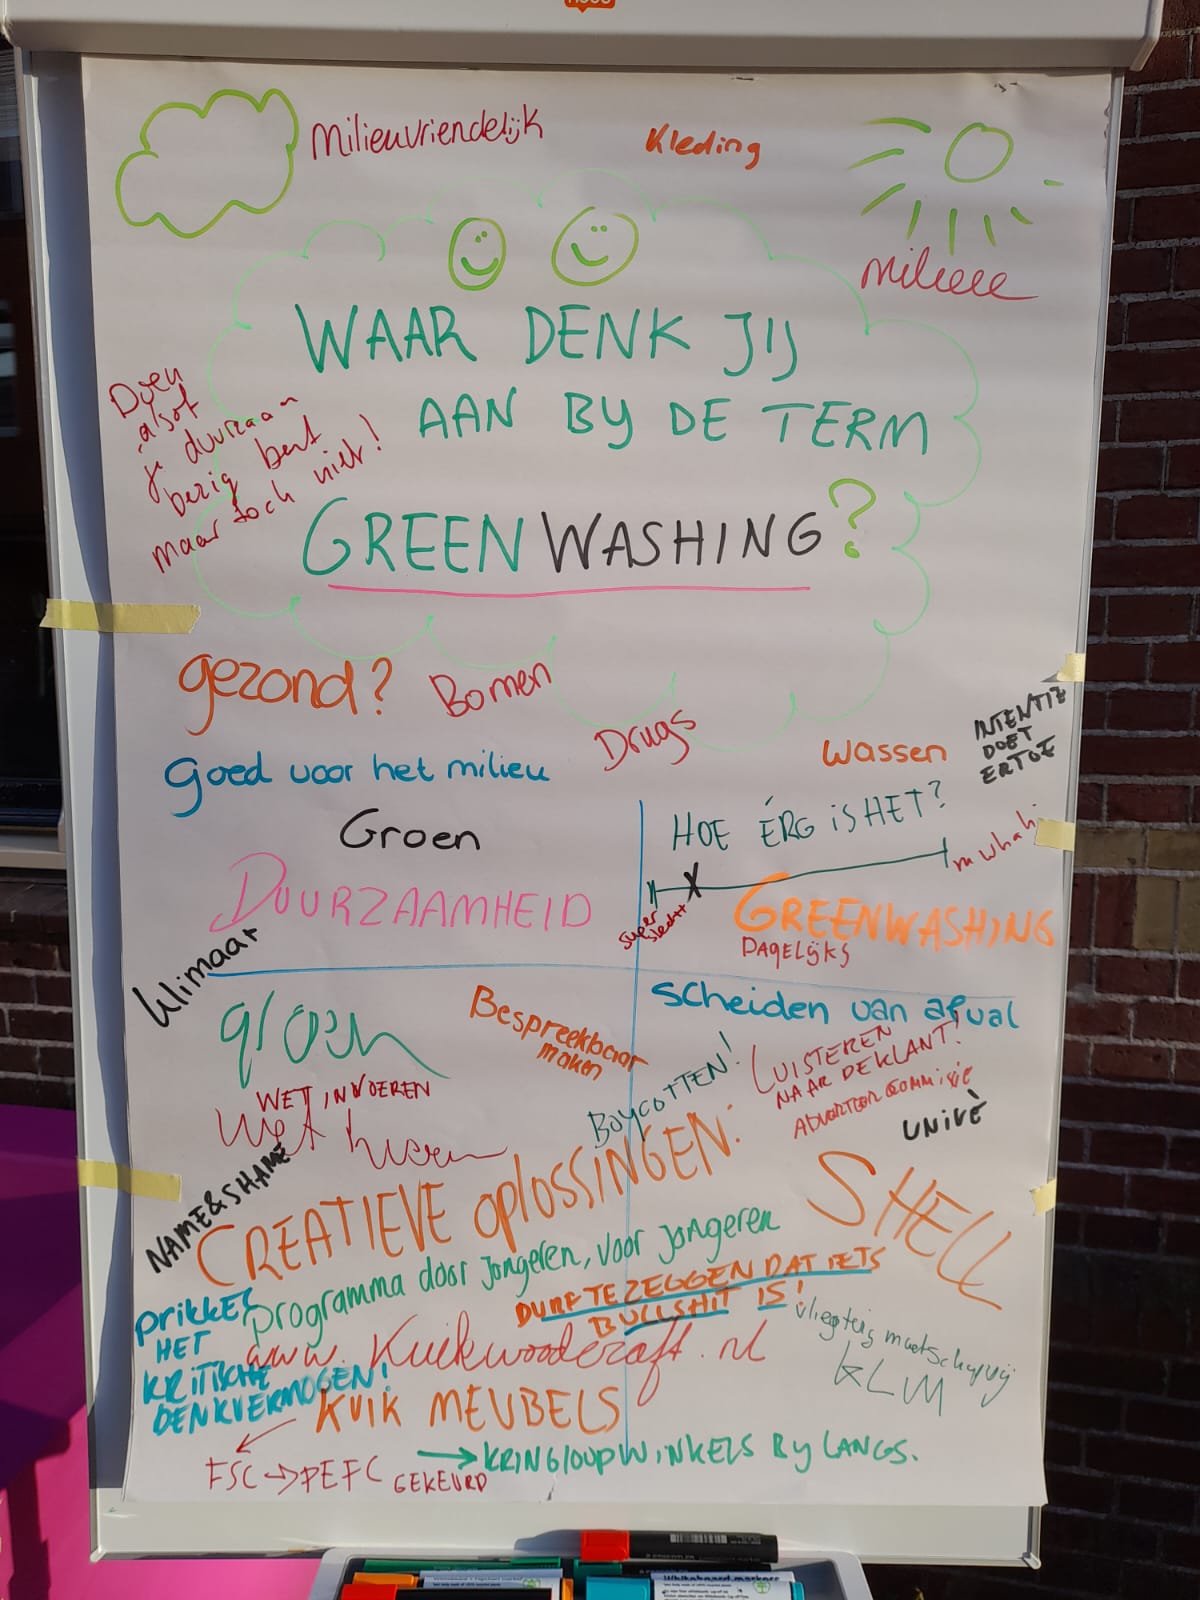 Milieuvriendelijk
Kleding
milieu
WAAR DENK JIJ
AAN BY DE TERM
GREENWASHING?
Doen
alsof
je duurzaam
bezig bent
maar toch niet!
gezond?
Bomen
Drugs
Wassen
INTENTIE
DOET
ERTOE
goed voor het milieu
Groen
DUURZAAMHEID
HOE ÉRG iS HET?
super
slecht
mwhah
GREENWASHING
DAGELIJKS
klimaat
groen
Bespreekbaar
maken
scheiden van afval
WET INVOEREN
BOYCOTTEN!
LUISTEREN
NAAR DE KLANT!
UNIVÈ
NAME & SHAME
CREATIEVE OPLOSSINGEN:
SHELL
programma door jongeren, voor jongeren
DURF TE ZEGGEN DAT IETS
BULLSHIT IS!
prikkel
HET
KRITISCHE
DENKVERMOGEN!
www.Kuikwoodcraft.nl
KLM
KUIK MEUBELS
FSC → PEFC GEKEURD
→ KRINGLOUPWINKELS BY LANGS.
Whiteboard markers